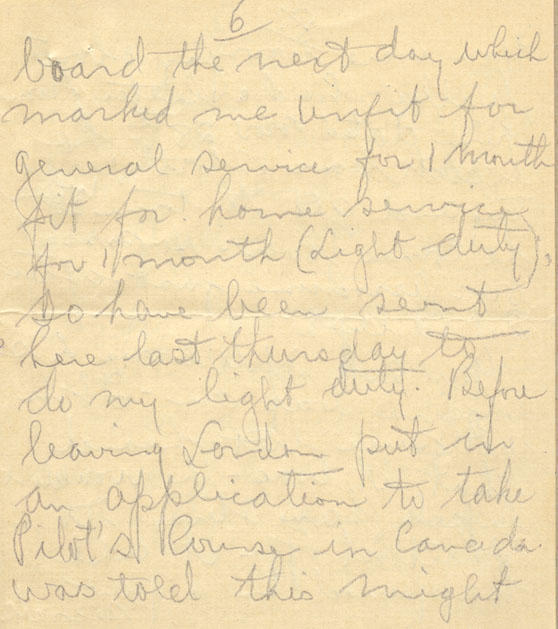 6
board the next day which
marked me Unfit for
general service for 1 month
fit for home service
for 1 month (Light duty),
so have been sent
here last thursday to
do my light duty. Before
leaving London put in
an application to take
Pilot's Course in Canada.
was told this might